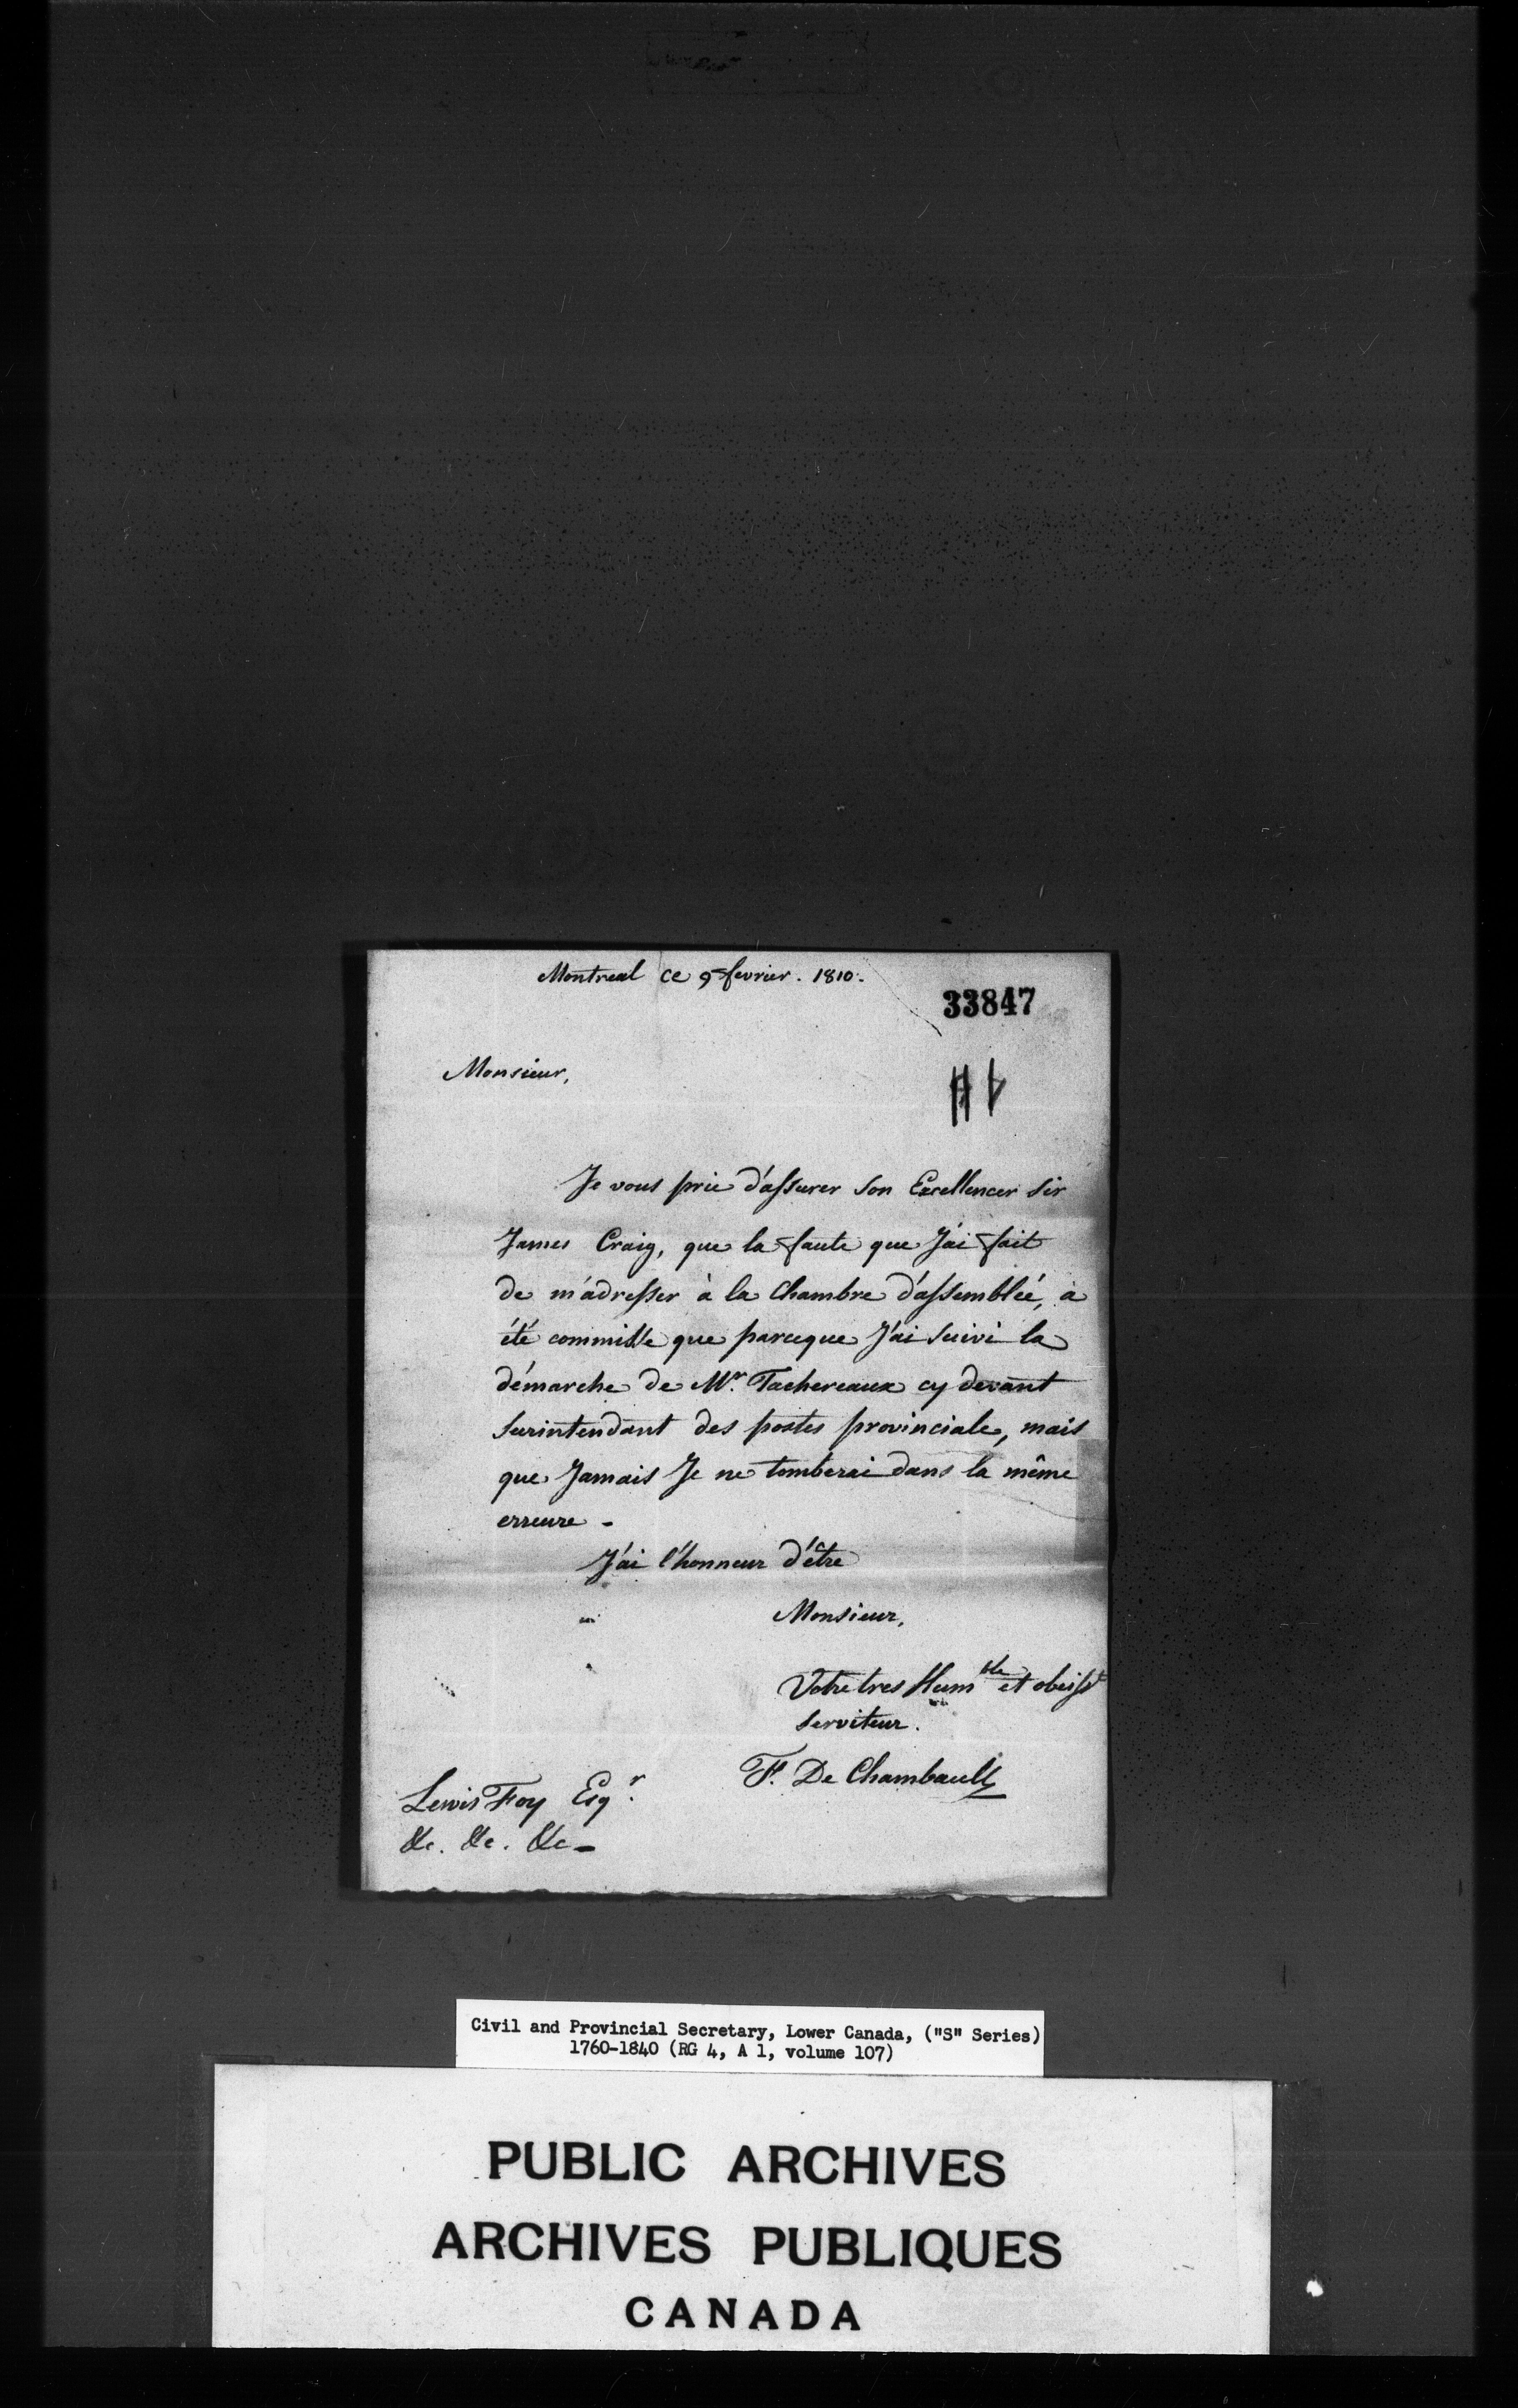 Montreal ce 9 fevrier. 1810.
33847
Monsieur,
Je vous prie d'assurer Son Excellencer Sir
James Craig, que la faute que J'ai fait
de m'adresser à la Chambre d'assemblée, à
été commisse que parceque J'ai Suivi la
démarche de Mr. Tachereaux cy devant
Surintendant des postes provinciale, mais
que Jamais Je ne tomberai dans la même
erreure -
J'ai l'honneur d'être
Monsieur,
Votre tres Humble et obeisst
Serviteur.
F. De Chambault
Lewis Foy Esqr.
&c. &c. &c -
Civil and Provincial Secretary, Lower Canada, ("S" Series)
1760-1840 (RG 4, A 1, volume 107)
PUBLIC ARCHIVES
ARCHIVES PUBLIQUES
CANADA